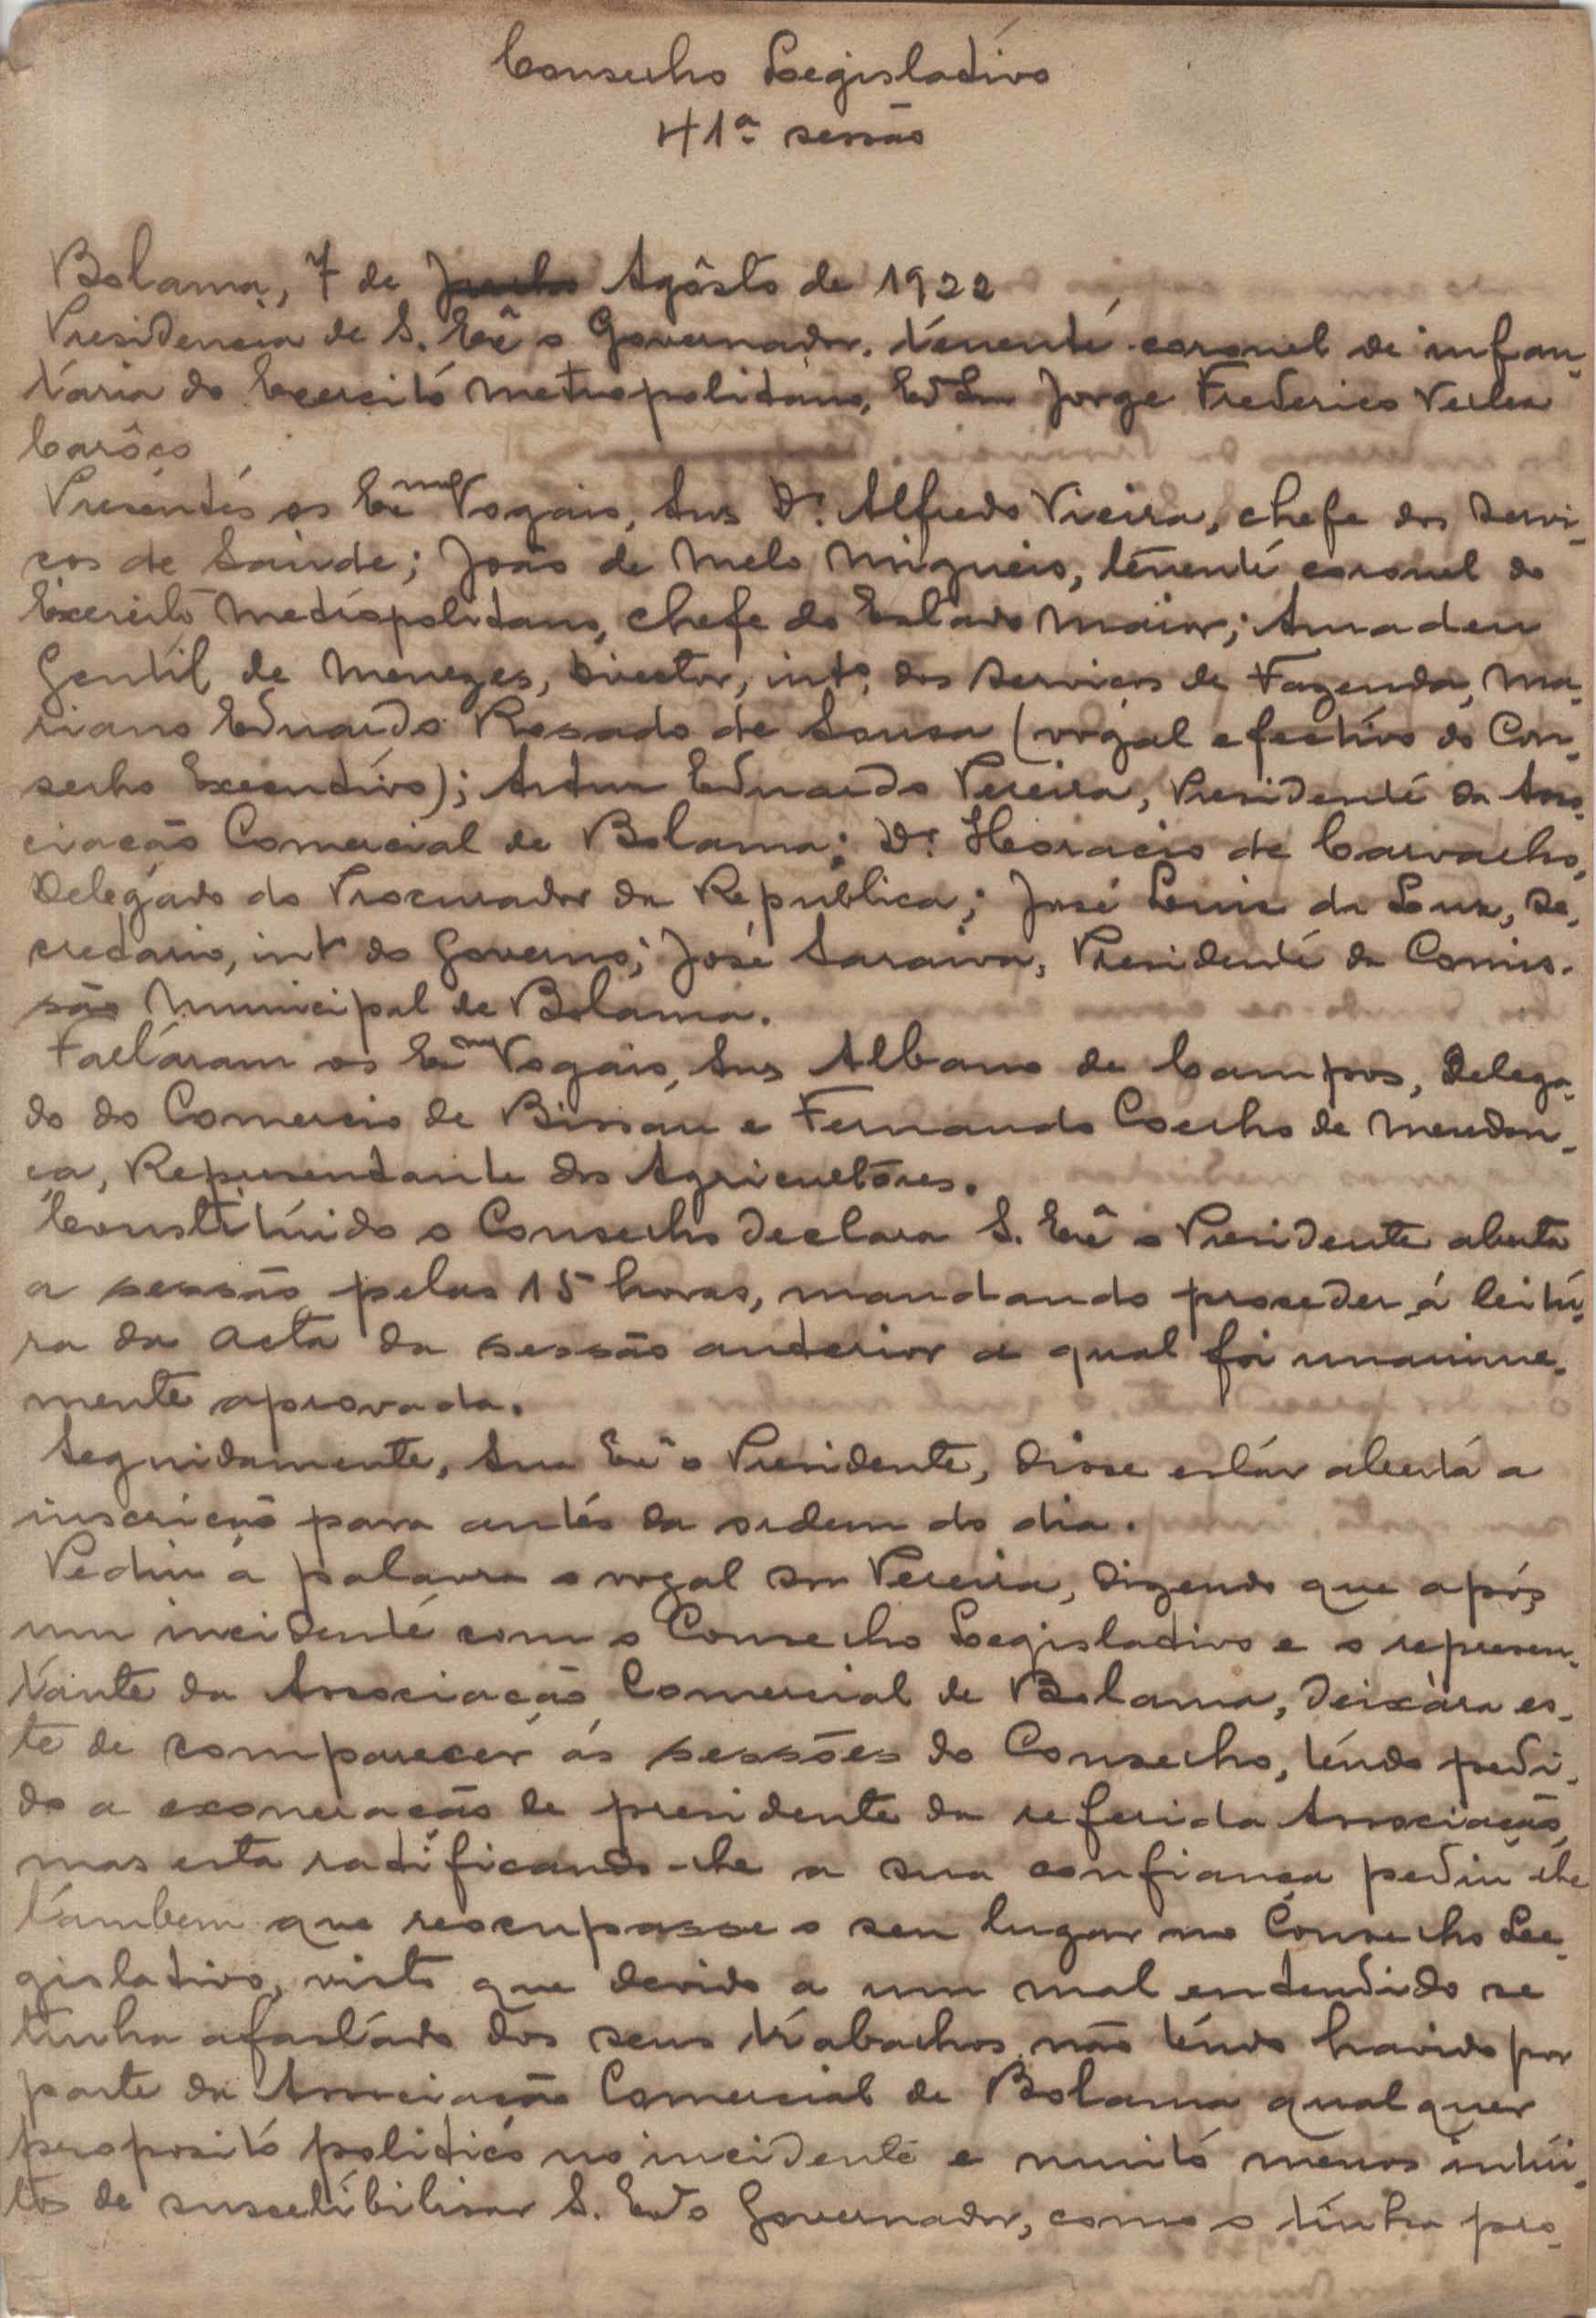 Conselho Legislativo
41ª sessão
Bolama, 7 de Junho Agôsto de 1922
Presidencia de S. Exª o Governador, tenente coronel de infan-
taria do Exercito Metropolitano, Jorge Frederico Velez
Carôço
Presentes os Exmos Vogais, Srs Dr. Alfredo Vieira, chefe dos servi-
ços de Saúde; João de Melo Migueis, tenente coronel do
Exercito Metropolitano, chefe do Estado Maior; Amadeu
Gentil de Menezes, Director, intº, dos serviços de Fazenda, Ma-
riano Eduardo Rosado de Sousa (vogal efectivo do Con-
selho Executivo); Artur Eduardo Pereira, Presidente da Asso-
ciação Comercial de Bolama; Dr. Horacio de Carvalho,
Delegado do Procurador da Republica; José Luis da Luz, Se-
cretario, intº do Governo; José Saraiva, Presidente da Comis-
são Municipal de Bolama.
Faltáram os Exmos Vogais, Srs Albano de Campos, Delega-
do do Comercio de Bissau e Fernando Coelho de Mendon-
ça, Representante dos Agricultôres.
Constituido o Conselho declara S. Exª o Presidente aberta
a sessão pelas 15 horas, mandando proceder á leitu-
ra da acta da sessão anterior a qual foi unanime-
mente aprovada.
Seguidamente, Sua Exª o Presidente, disse estár aberta a
inscrição para antes da ordem do dia.
Pediu a palavra o vogal Snr Pereira, dizendo que após
um incidente com o Conselho Legislativo e o represen-
tante da Associação Comercial de Bolama, deixára es-
te de comparecer ás sessões do Conselho, tendo pedi-
do a exoneração de presidente da referida Associação,
mas esta ratificando-lhe a sua confiança pediu-lhe
tambem que reocupasse o seu lugar no Conselho Le-
gislativo, visto que devido a um mal entendido se
tinha afastado dos seus trabalhos, não tendo havido por
parte da Associação Comercial de Bolama qualquer
proposito politico no incidente e muito menos intui-
tos de suscetibilisar S. Exª o Governador, como o tinha pro-